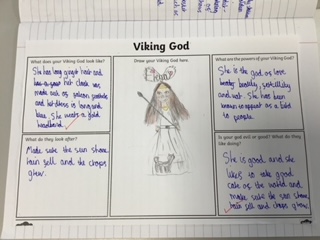 Viking God
What does your Viking God look like?
She has long ginger hair and
has a
made out of
and her dress is long and
blue. She wears a gold
headband.
Draw your Viking God here.
What are the powers of your Viking God?
She is the god os love
beauty, sertillity
and war. She has been
known to appear as a bird
to people.
What do they look after?
Make sure the sun shone,
rain sell and the crops
grew.
Is your god evil or good? What do they
like doing?
She is good and she
likes to take good
care of the world and
make sure the sun shone,
rain sell and crops grew.